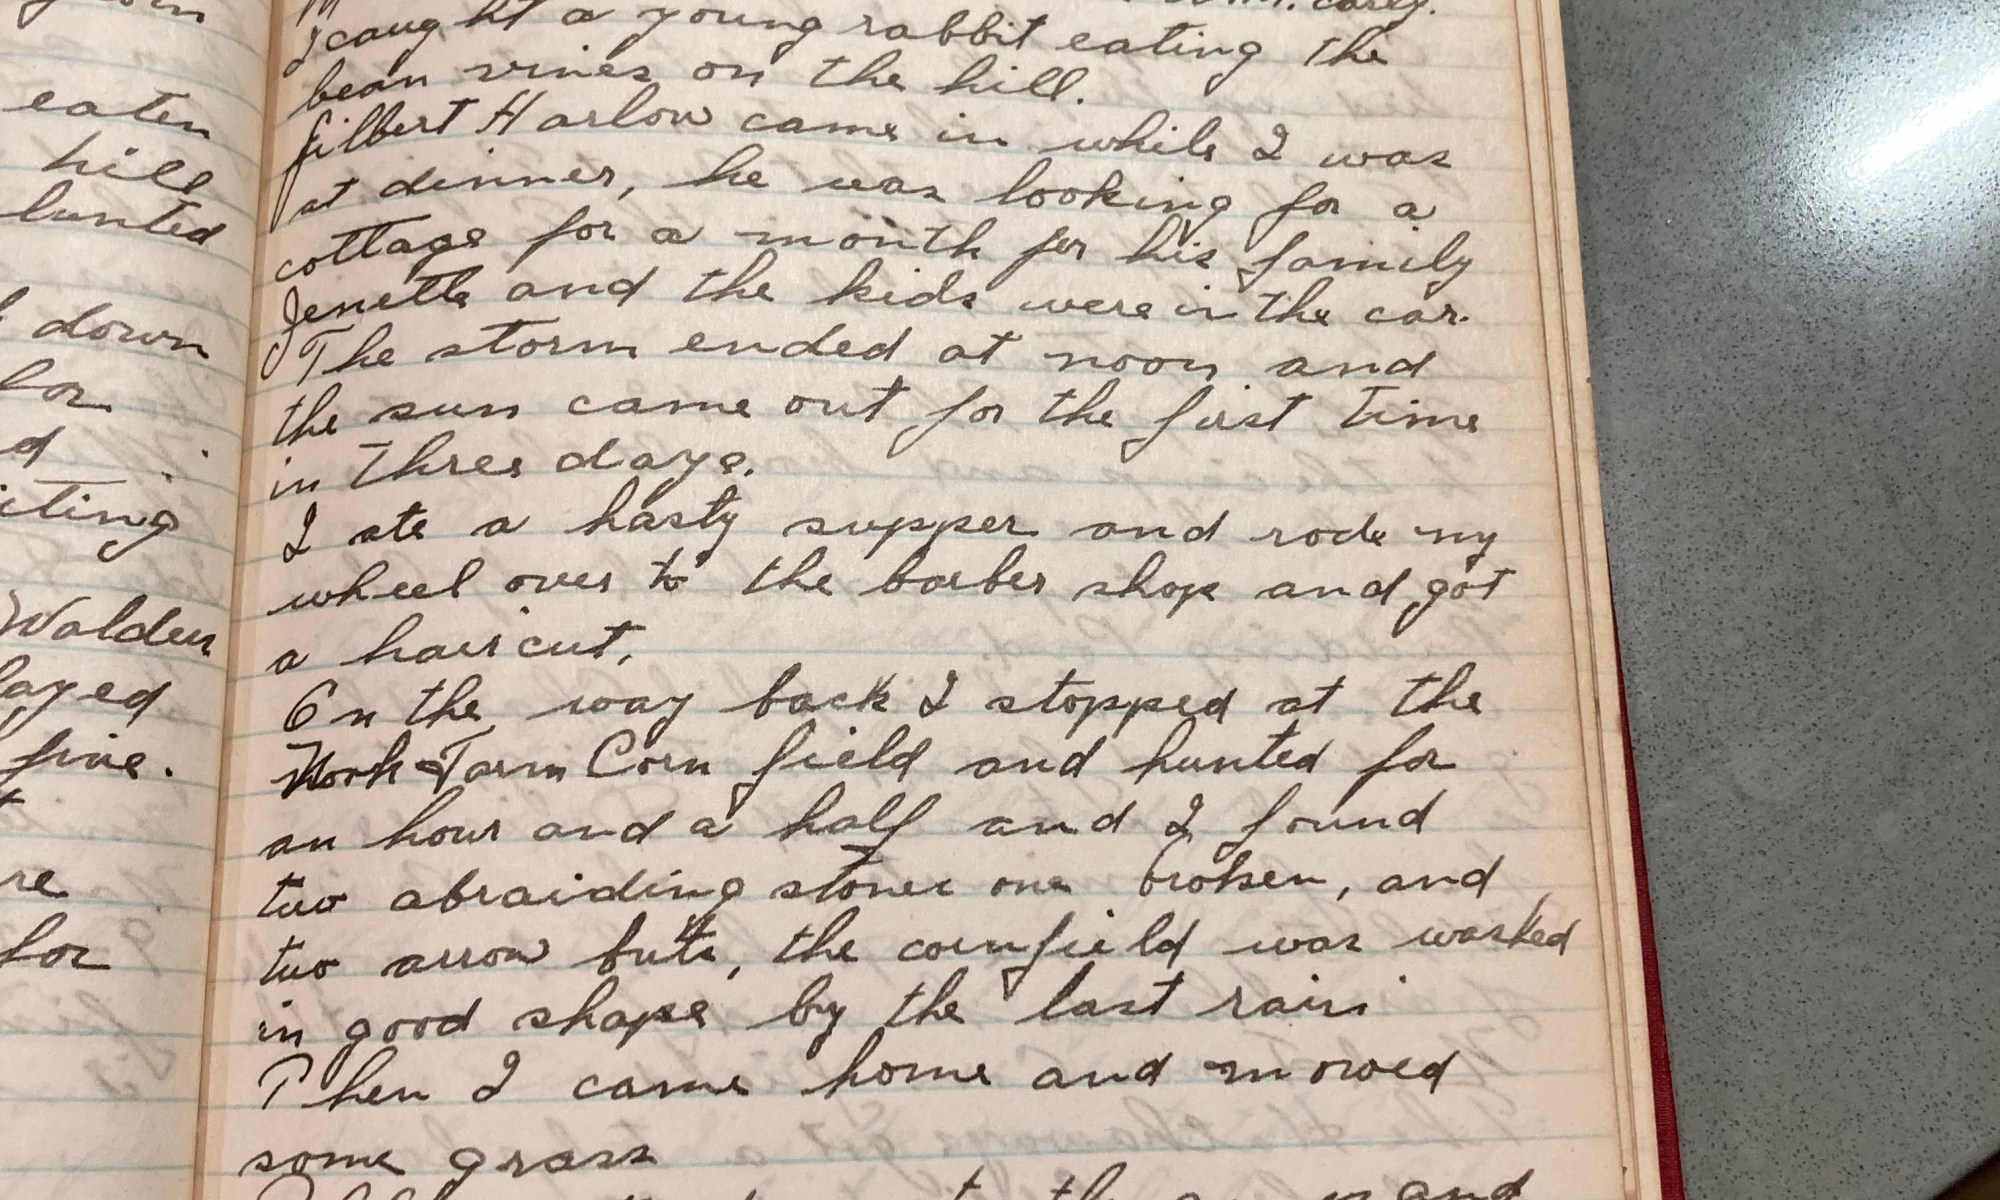 eaten
hill
down
for
Walden
layed
fine.
for
Carey.
I caught a young rabbit eating the
bean vines on the hill.
Gilbert Harlow came in while I was
at dinner, he was looking for a
cottage for a month for his family
Jenette and the kids were in the car.
The storm ended at noon and
the sun came out for the first time
in three days.
I ate a hasty supper and rode my
wheel over to the barber shop and got
a haircut.
On the way back I stopped at the
Nook Farm Corn field and hunted for
an hour and a half and I found
two abraiding stones one broken, and
two arrow butts, the cornfield was washed
in good shape by the last rain
Then I came home and mowed
some grass
and